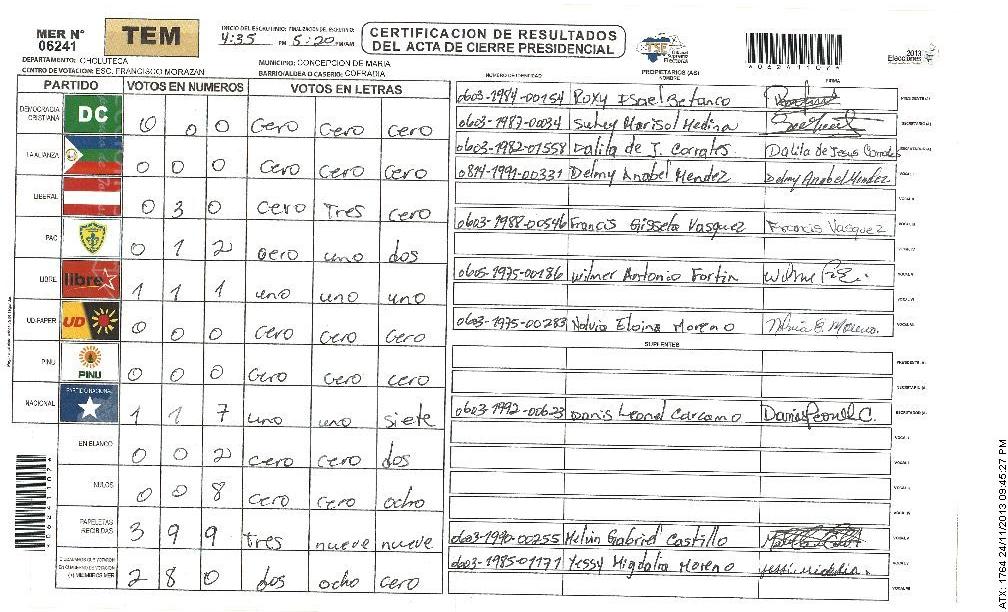 MER N° 06241
TEM
INICIO DEL ESCRUTINIO: FINALIZACION DEL ESCRUTINIO:
4:35 PM 5:20 PM/AM
CERTIFICACION DE RESULTADOS
DEL ACTA DE CIERRE PRESIDENCIAL
TSE Tribunal Supremo Electoral
A06241107A
2013
Elecciones
DEPARTAMENTO: CHOLUTECA
MUNICIPIO: CONCEPCION DE MARIA
CENTRO DE VOTACION: ESC. FRANCISCO MORAZAN
BARRIO/ALDEA O CASERIO: COFRADIA
PARTIDO VOTOS EN NUMEROS VOTOS EN LETRAS
DEMOCRACIA CRISTIANA DC 0 0 0 Cero Cero Cero
LA ALIANZA 0 0 0 Cero Cero Cero
LIBERAL 0 3 0 Cero Tres Cero
PAC 0 1 2 Cero uno dos
LIBRE libre 1 1 1 uno uno uno
UD-FAPER UD 0 0 0 Cero Cero Cero
PINU PINU 0 0 0 Cero Cero Cero
NACIONAL PARTIDO NACIONAL 1 1 7 uno uno siete
EN BLANCO 0 0 2 Cero Cero dos
NULOS 0 0 8 Cero Cero ocho
PAPELETAS RECIBIDAS 3 9 9 tres nueve nueve
(+) MIEMBROS MER 2 8 0 dos ocho cero
NUMERO DE IDENTIDAD PROPIETARIOS (AS) NOMBRE FIRMA
0603-1984-00154 Roxy Isael Betanco PRESIDENTE (A)
0603-1987-0034 Suhey Marisol Medina SECRETARIO (A)
0603-1982-01558 Dalila de J. Corrales Dalila de Jesus Corrales
0814-1991-00331 Delmy Anabel Mendez Delmy Anabel Mendez VOCAL I
0603-1988-00546 Francis Gissela Vasquez Francis Vasquez
0605-1975-00186 Wilmer Antonio Fortin
0603-1975-00283 Nolvia Eloina Moreno
SUPLENTES
PRESIDENTE (A)
SECRETARIO (A)
0603-1992-00623 Danis Leonel Carcamo
VOCAL I
0603-1990-00255 Melvin Gabriel Castillo
0603-1985-01171 Yessy Migdalia Moreno
ATX: 1764 24/11/2013 09:45:27 PM